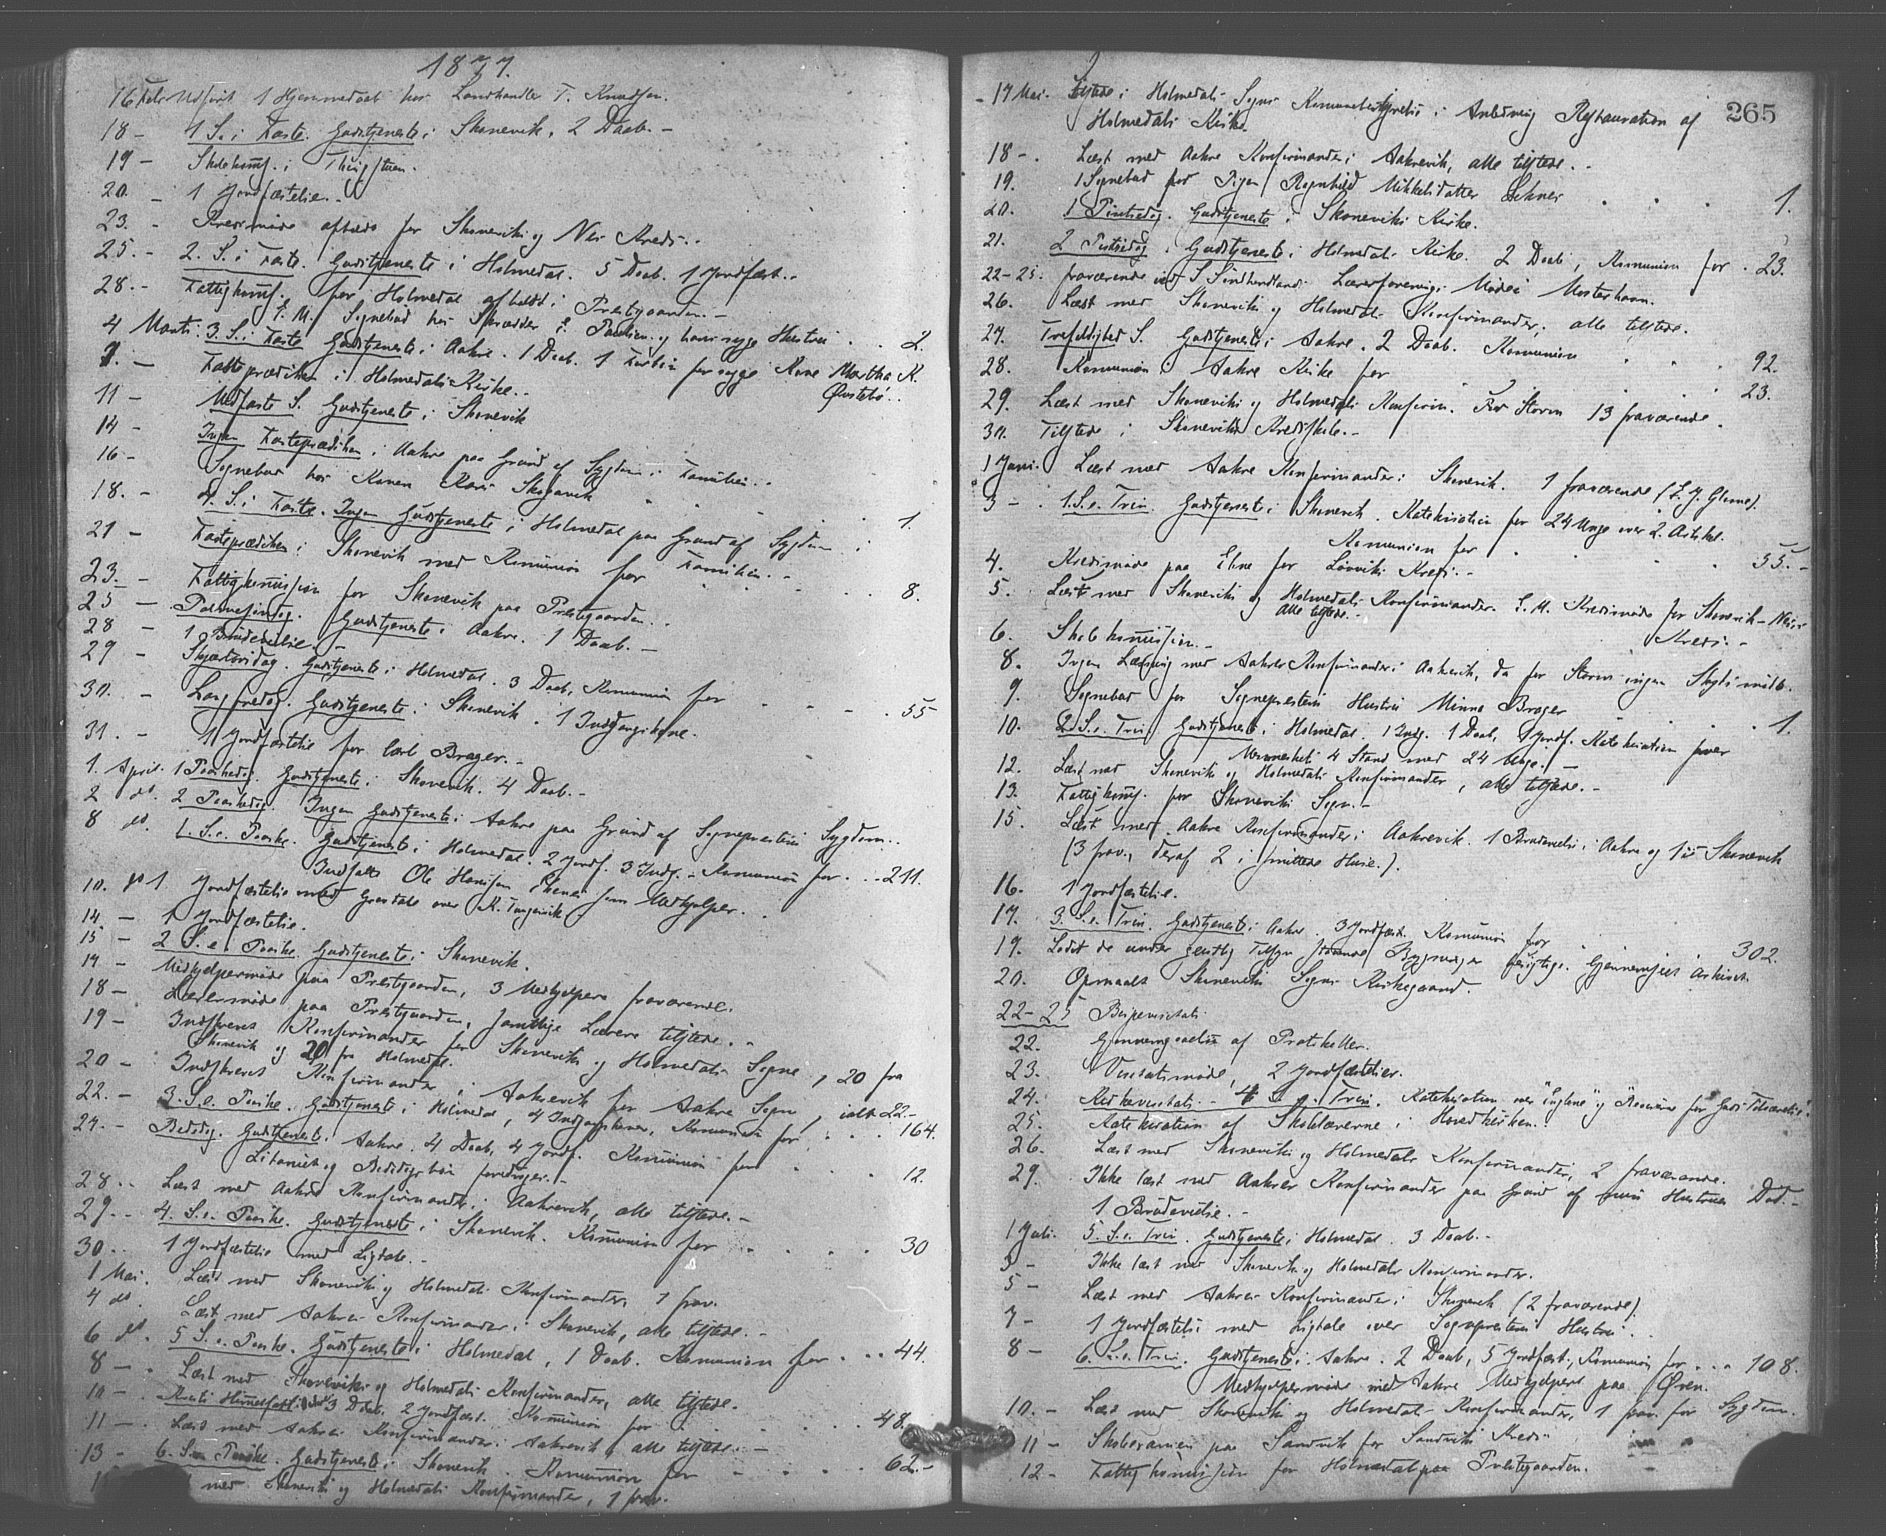 1877.
16 Febr. Udført 1 Hjemmedaab hos Landhandler T. Knudsen.
18 – 1 S. i Faste. Gudstjeneste i Skonevik. 2 Daab. –
19 – Skolekomᷠ. i Thingstuen.
20. – 1 Jordfæstelse. –
23. – Kredsmøde afholdt for Skoneviks og Nes Kreds. .
25. – 2. S. i Faste. Gudstjeneste i Holmedal. 5 Daab. 1 Jordfæst. .
28. – Fattigkomᷠ. for Holmedal afholdt i Præstegaarden. –
S. M. Sognebud hos Skrædder E. Paulsen og hans syge Hustru . . . 2.
4 Marts. 3. S. i Faste. Gudstjeneste i Aakre. 1 Daab. 1 Forbøn for syge Kone Martha K. Øvstebø. .
7. – Fasteprædiken i Holmedals Kirke. .
11 – Midfaste S. Gudstjeneste i Skonevik
14 – Ingen Fasteprædiken i Aakre paa Grund af Sygdom i Familien. .
16 – Sognebud hos Konen Kari Skogavik . . . 1.
18. – 4. S. i Faste. Ingen Gudstjeneste i Holmedal paa Grund af Sygdom i Familien. –
21 – Fasteprædiken i Skonevik med Komunion for . . . 8.
23. – Fattigkomission for Skonevik paa Præstegaarden. .
25 – Palmesøndag. Gudstjeneste i Aakre. 1 Daab. –
28 – 1 Brudevielse –
29 – Skjærtorsdag. Gudstjeneste i Holmedal. 3 Daab, Komunion for . . . 55
30. – Langfredag. Gudstjeneste i Skonevik. 1 Indgangskone.
31. – 1 Jordfæstelse for Carl Brager. –
1. April. 1 Paaskedag. Gudstjeneste i Skonevik. 4 Daab. –
2 do. 2 Paaskedag. Ingen Gudstjeneste i Aakre paa Grund af Sognepræstens Sygdom. .
8 do. 1. S. e. Paaske. Gudstjeneste i Holmedal. 2 Jordf. 3 Indg. – Komunion for . . . 211.
Indsatte Ole Hansen Ebne som Medhjelper. .
10. 1 Jordfæstelse med Gravtale over K. Tungesvik
14. – 1 Jordfæstelse.
15 – 2 S. e. Paaske. Gudstjeneste i Skonevik.
17 – Medhjelpermøde paa Præstegaarden, 3 Medhjelpere fraværende.
18 – Lærermøde paa Præstegaarden, samtlige Lærere tilstede. .
19 – Indskrevet Konfirmander for Skoneviks og Holmedals Sogne, 20 fra
Skonevik og 20 fra Holmedal.
20 – Indskrevet Konfirmander i Aakrevik for Aakre Sogn, ialt 22. –
22. – 3. S. e. Paaske. Gudstjeneste i Holmedal, 4 Indgangskoner, Komunion for . . . 164.
27. – Bededag. Gudstjeneste i Aakre. 4 Daab, 4 Jordf. Komunion for . . . 12.
Litaniet og Bededagsbøn foredraget. –
28. . Læst med Aakre Konfirmander i Aakrevik, alle tilstede. –
29. . 4. S. e. Paaske. Gudstjeneste i Skonevik. Komunion for . . . 30
30. . 1 Jordfæstelse med Ligtale. –
1 Mai. Læst med Skoneviks og Holmedals Konfirmander, 1 frav.
4 do. Læst med Aakres Konfirmander i Skonevik, alle tilstede. –
6 do. 5 S. e. Paaske. Gudstjeneste i Holmedal, 1 Daab. Komunion for . . . 44.
8 – . Læst med Skoneviks og Holmedals Konfirmander, alle tilstede.
10 – . Kristi Himmelfartsdag 3 Daab, 2 Jordfæst. Komunion for . . . 48.
11 – . Læst med Aakres Konfirmander i Aakrevik, alle tilstede. –
13 – 6. S. e. Paaske. Gudstjeneste i Skonevik. Komunion for . . . 62. –
med Skoneviks og Holmedals Konfirmander, 1 frav.
265
17 Mai. Tilstede i Holmedals Sogns Komunebestyrelse i Anledning Restauration af
Holmedals Kirke.
18 – . Læst med Aakre Konfirmander i Aakrevik, alle tilstede. .
19. 1 Sognebud hos Pigen Ragnhild Mikkelsdatter Ebne . . . 1.
20. 1 Pintsedag. Gudstjeneste i Skoneviks Kirke.
21. 2 Pintsedag. Gudstjeneste i Holmedals Kirke. 2 Daab, Komunion for . 23.
22–25. fraværende ved S. Søndhordlands Lærerforenings Møde i Mosterhavn.
26. Læst med Skoneviks og Holmedals Konfirmander, alle tilstede.
27. Trefoldighed S. Gudstjeneste i Aakre. 2 Daab. Komunion . . . 92.
28. Komunion i Aakre Kirke for . . . 23.
29. Læst med Skoneviks og Holmedals Konfirm. For Storm 13 fraværende.
30. Tilstede i Skoneviks Kredsskole. –
1 Juni. Læst med Aakre Konfirmander i Skonevik. 1 fraværende
3 – . 1. S. e. Trin. Gudstjeneste i Skonevik. Katekisation for 24 Unge over 2. Artikel.
Komunion for . . . 55. –
4. Kredsmøde paa Ebne for Løvviks Kreds. –
5. Læst med Skoneviks og Holmedals Konfirmander. S. M. Kredsmøde for Skonevik – Nes
alle tilstede. – Kreds. –
6. Skolekomission. –
8. Ingen Læsning med Aakres Konfirmander i Aakrevik, da for Storm ingen Skyds mødte.
9. Sognebud for Sognepræstens Hustru Minna Brager . . . 1.
10. 2. S. e. Trin. Gudstjeneste i Holmedal. 1 Indg. 1 Daab, 1 Jordf. Katekisation over
Menneskets 4 Stand med 24 Unge. –
12. Læst med Skoneviks og Holmedals Konfirmander, alle tilstede. –
13. Fattigkomᷠ. for Skoneviks Sogn. –
15. Læst med Aakre Konfirmander i Aakrevik. 1 Brudevielse i Aakre og 1 i Skonevik
(3 frav., deraf 2 i smittede Huse.).
16. 1 Jordfæstelse.
17. 3. S. e. Trin. Gudstjeneste i Aakre. 3 Jordfæst. Komunion for . . . 302.
19. Lodet de under geistlig Tilsyn staaende Bygninger besigtige. Gjennemgaaet Arkivet.
20. Opmaalt Skoneviks Sogns Kirkegaard.
22–25 Bispevisitats.
22. Gjennemgaaelse af Protokoller.
23. Visitatsmøde, 2 Jordfæstelser.
24. Kirkevisitats. – 4 S. e. Trin. Katekisation over "Englene" og
25. Katekisation af Skolelærerne i Hovedkirken.
26. Læst med Skoneviks og Holmedals Konfirmander, 2 fraværende.
29. Ikke læst med Aakres Konfirmander paa Grund af min Hustrues Død. –
1 Brudevielse. –
1 Juli. 5. S. e. Trin. Gudstjeneste i Holmedal. 3 Daab. –
3 – Ikke læst med Skoneviks og Holmedals Konfirmander.
5 – Læst med Aakres Konfirmander i Skonevik (2 fraværende).
7 – 1 Jordfæstelse med Ligtale over Sognepræstens Hustru. .
8 – 6. S. e. Trin. Gudstjeneste i Aakre. 2 Daab, 5 Jordfæst., Komunion for . . . 108.
Medhjelpermøde med Aakre Medhjelpere paa Øren.
10. – Læst med Skoneviks og Holmedals Konfirmander, 1 frav. for Sygdom.
11 – Skoleexamen paa Sandvik for Sandviks Kreds
12 – Fattigkomission for Holmedal paa Præstegaarden.